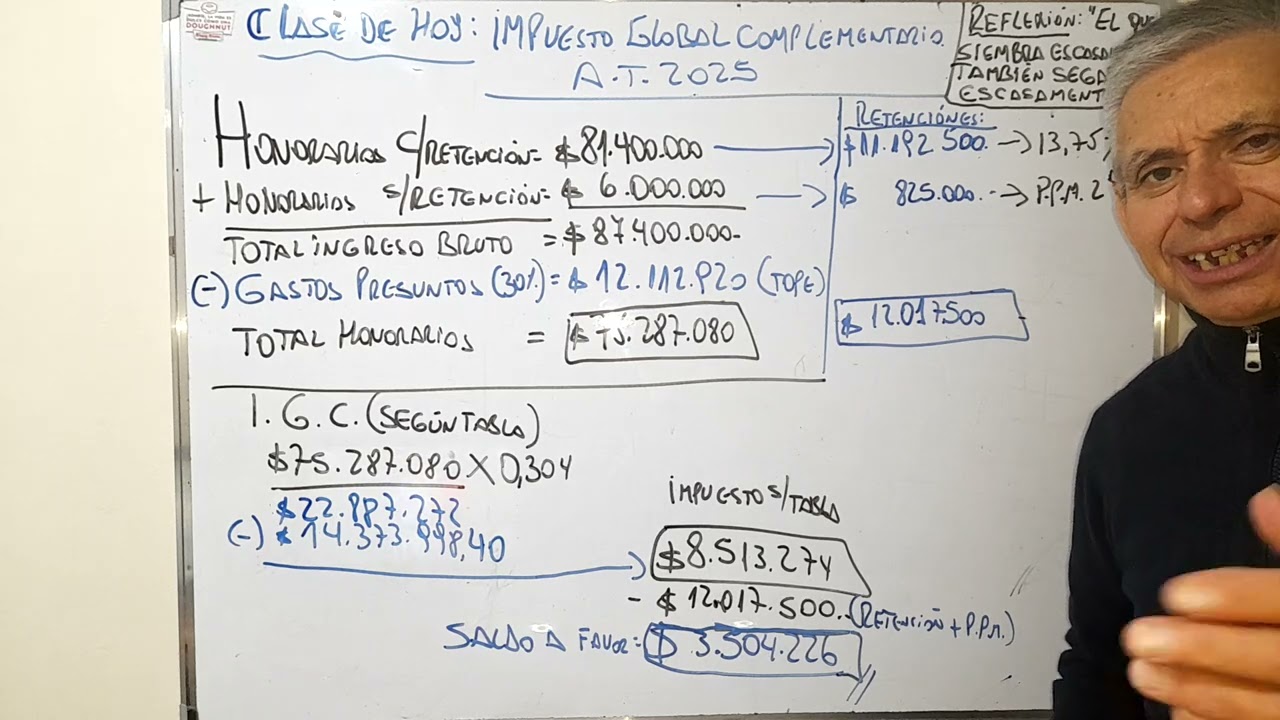 CLASE DE HOY: IMPUESTO GLOBAL COMPLEMENTARIO
A.T. 2025
REFLEXIÓN: "EL QUE
SIEMBRA ESCASA
TAMBIÉN SEGA
ESCASAMENT
DOUGHNUT
HONORARIOS C/RETENCIÓN = $81.400.000
+ HONORARIOS S/RETENCIÓN = $ 6.000.000
TOTAL INGRESO BRUTO = $ 87.400.000-
(-) GASTOS PRESUNTOS (30%) = $ 12.112.920 (TOPE)
TOTAL HONORARIOS = $ 75.287.080
RETENCIÓNES:
$11.192.500 → 13,75
$ 825.000.- → P.P.M. 2
$ 12.017.500
I.G.C. (SEGÚN TABLA)
$75.287.080 X 0,304
$22.887.272
(-) $ 14.373.998,40
IMPUESTO S/TABLA
$8.513.274
- $ 12.017.500.- (RETENCIÓN + P.P.M.)
SALDO A FAVOR = $ 3.504.226